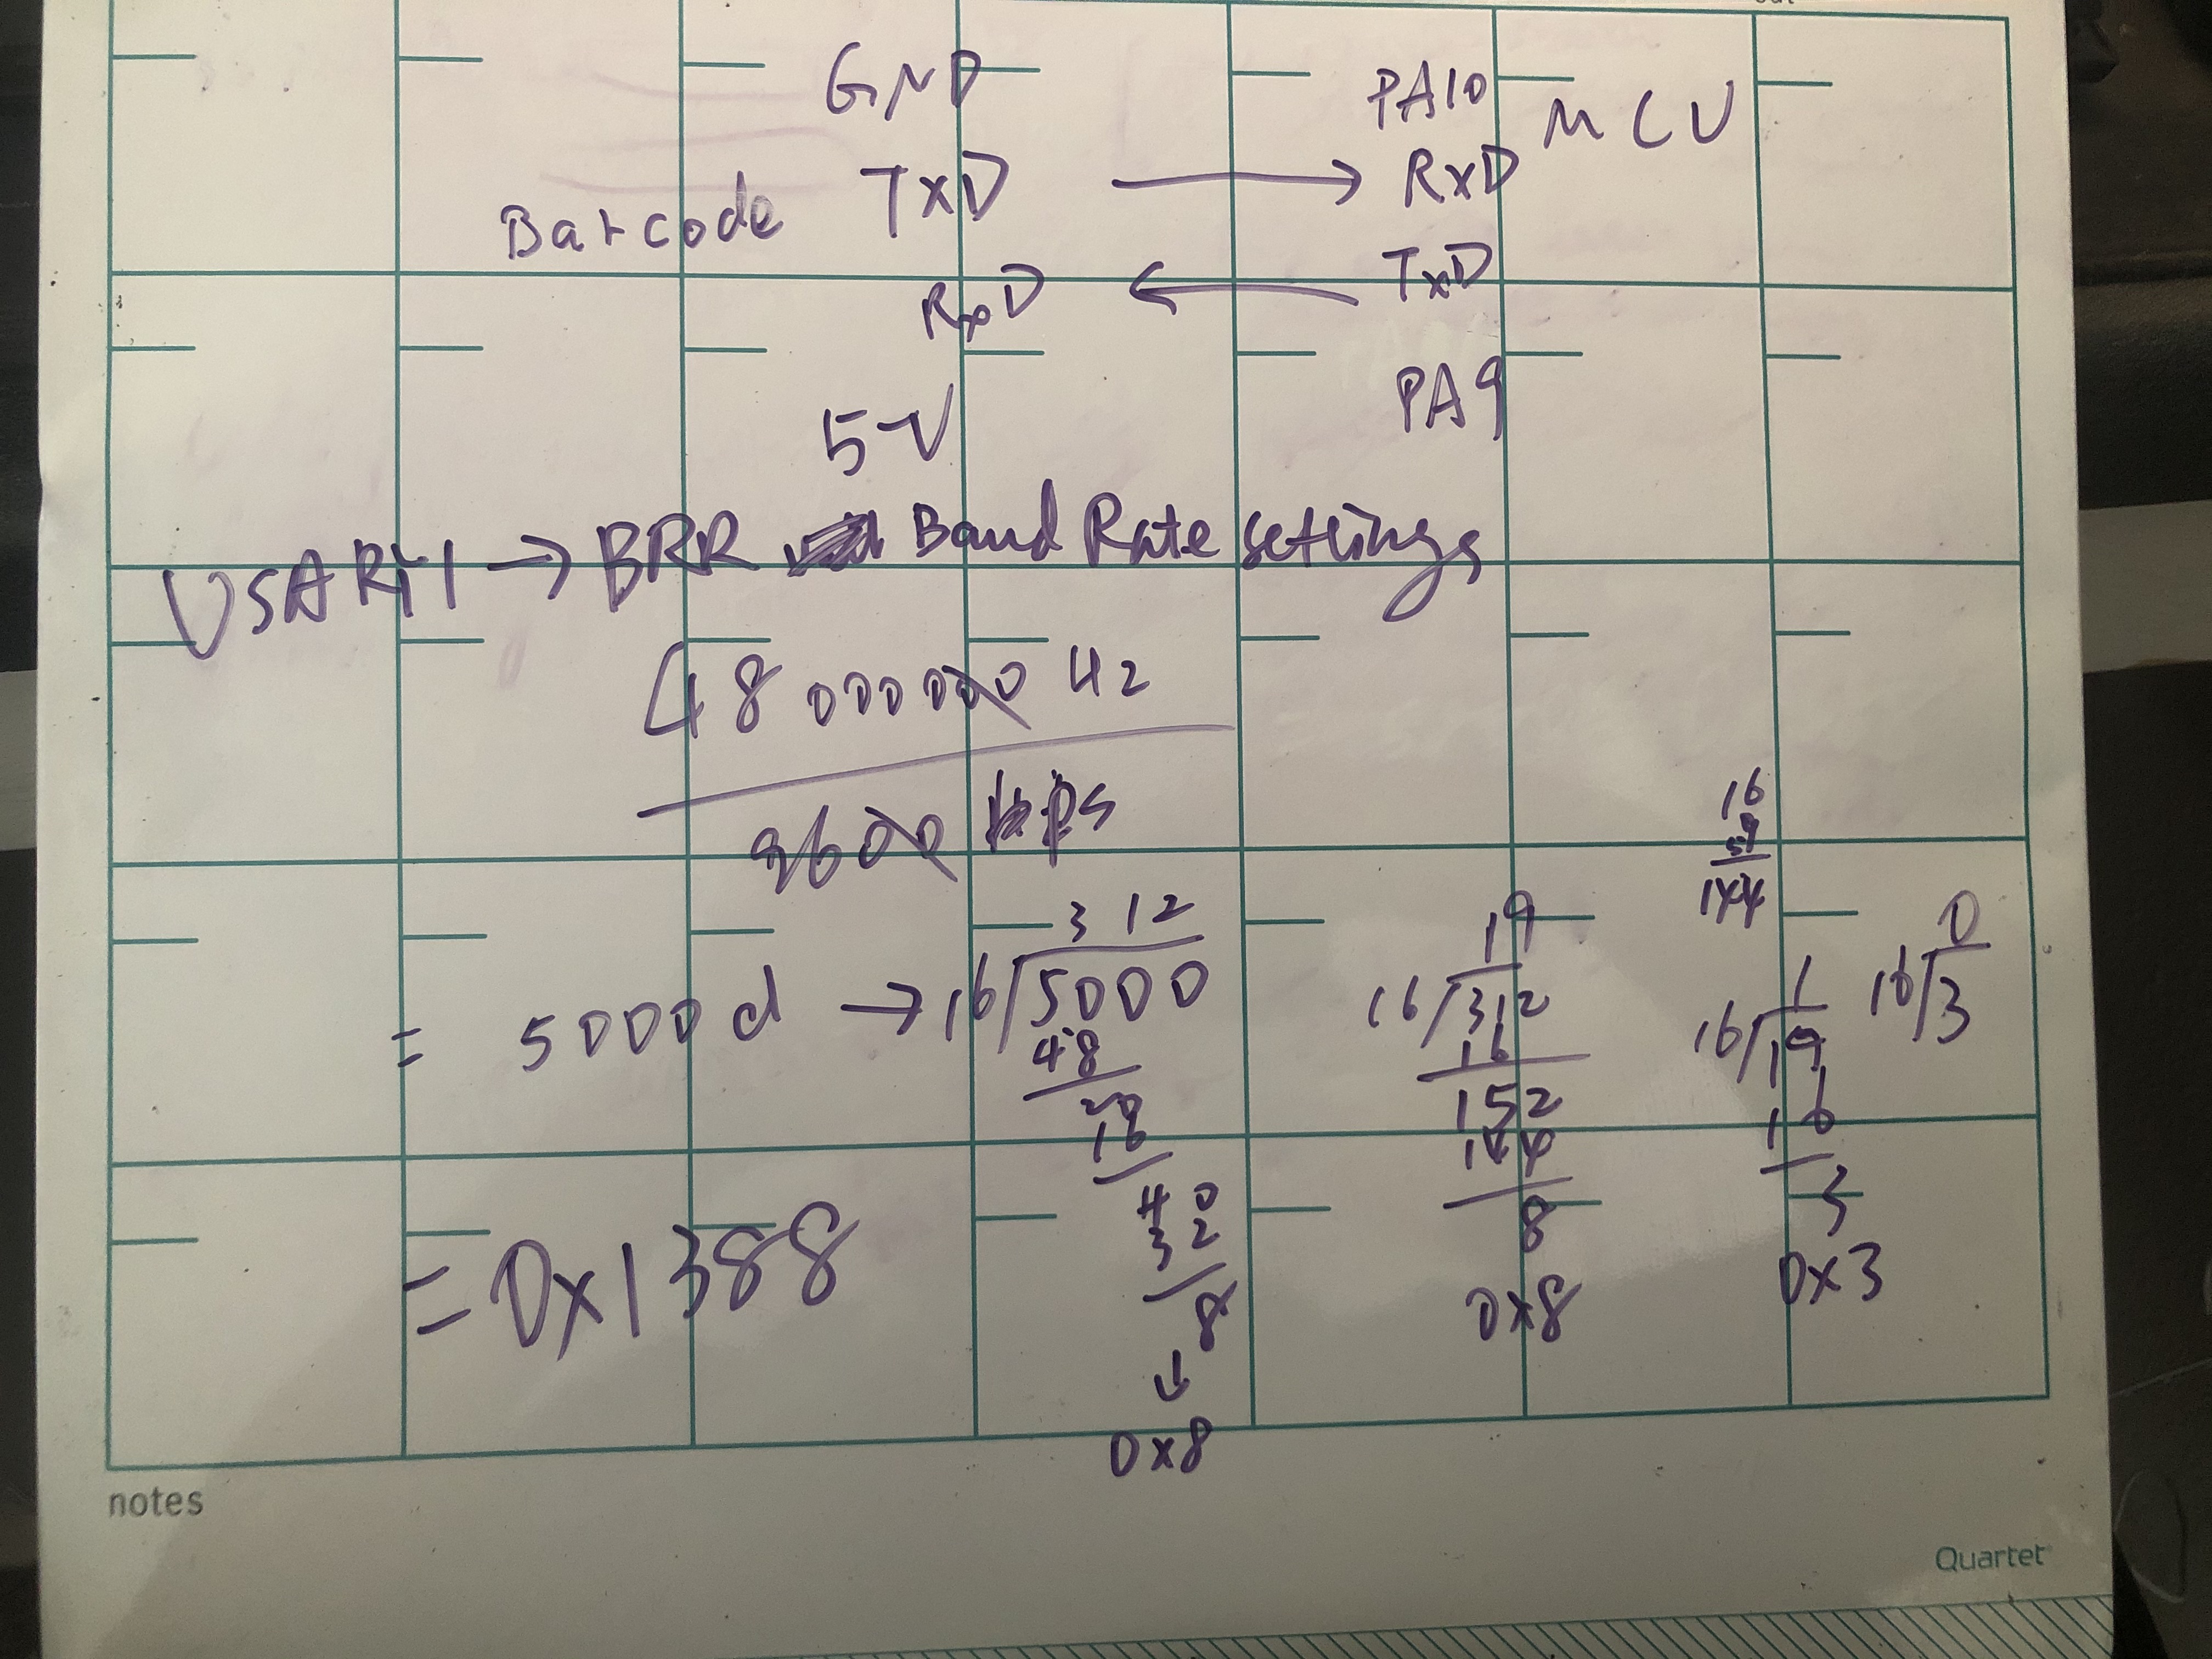 GND PA10
Barcode TxD → RxD MCU
RxD ← TxD
5V PA9
USART1 → BRR Baud Rate settings
48000000 Hz
9600
= 5000d → 16/5000 312
48
20
16
40
32
8
0x8
16/312 19
16
152
144
8
0x8
16
9
144
16/19 1
16
3
0x3
16/3 0
= 0x1388
notes
Quartet